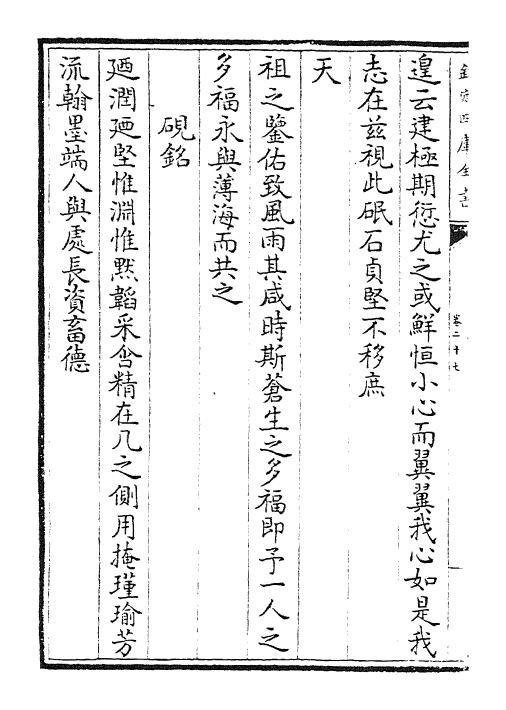 欽定四庫全書
卷二十七
遑云建極期愆尤之或鮮恒小心而翼翼我心如是我
志在茲視此砥石貞堅不移庶
天
祖之鑒佑致風雨其咸時斯蒼生之多福即予一人之
多福永與薄海而共之
硯銘
廼潤廼堅惟淵惟默韜采含精在几之側用掩瑾瑜芳
流翰墨端人與處長資畜德